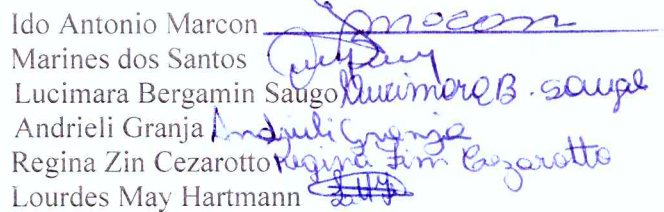 Ido Antonio Marcon
Marines dos Santos
Lucimara Bergamin Saugo Lucimara B. Saugo
Andrieli Granja Andrieli Granja
Regina Zin Cezarotto Regina Zim Cezarotto
Lourdes May Hartmann